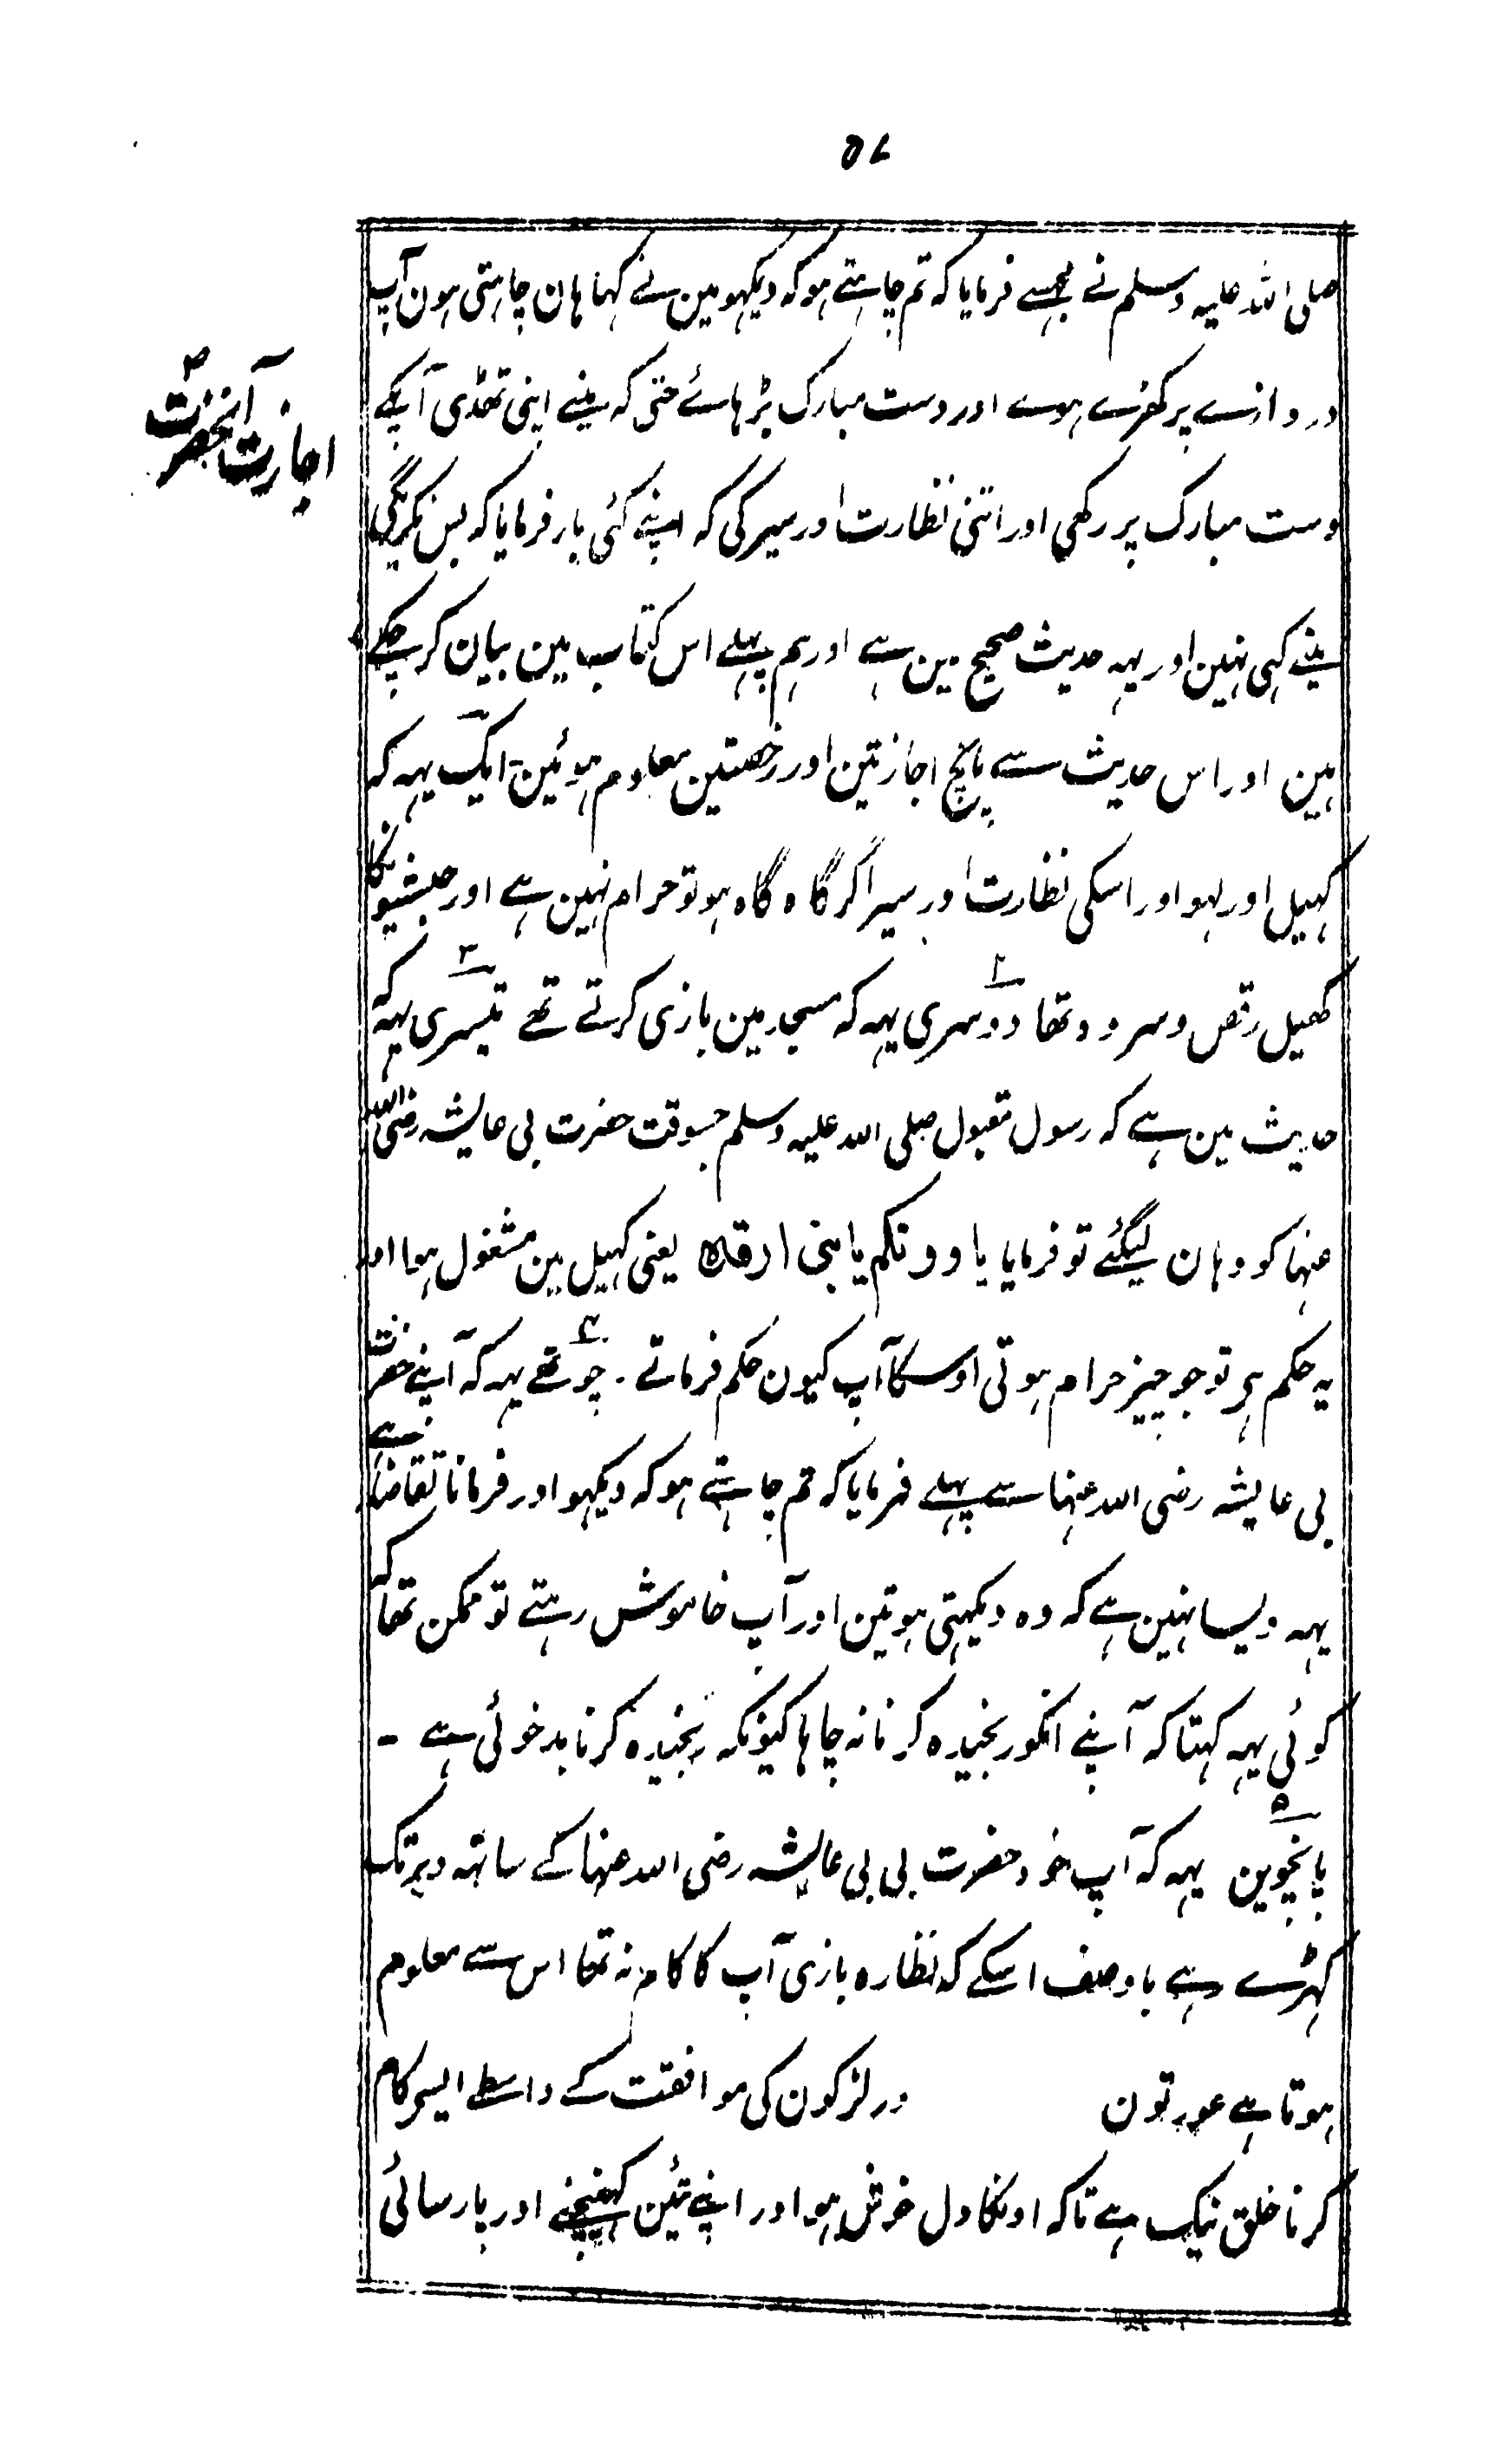 ۵۷
صلی اللہ علیہ وسلم نے مجھسے فرمایا کہ تم چاہتے ہو کہ دیکہو مین نے کہا ہان چاہتی ہون آپ
دروازے پر کھڑے ہوے اور دست مبارک بڑہائے حتی کہ مینے اپنی تھڈی آپکے
اجازت آنحضرتؐ
دست مبارک پر رکھی اور اتنی نظارت اور سیر کی کہ اپنے کئی بار فرمایا کہ بس نکروگی
مینے کہی نہین اور یہہ حدیث صحیح مین ہے اور ہم پہلے اس کتاب مین بیان کرچکے
ہین اور اس حدیث سے پانچ اجازتین اور رخصتین معلوم ہوئین ایک یہہ کہ
کہیل اور لہو اور اسکی نظارت اور سیر اگر گاہ گاہ ہو تو حرام نہین ہے اور حبشیونکا
کھیل رقص و سرود تھا دوسری یہہ کہ مسجد مین بازی کرتے تھے تیسری یہہ کہ
۲ ۳
حدیث مین ہے کہ رسول مقبول صلی اللہ علیہ وسلم جسوقت حضرت بی عایشہ رضی اللہ
عنہا کو وہان لیگئے تو فرمایا یا دونکم یا بنی ارفدہ یعنی کہیل مین مشغول ہو اور
یہ حکم ہر تو جو چیز حرام ہوتی اوسکا آپ کیون حکم فرماتے۔ چوتھے یہہ کہ آپنے حضرت
۴
بی عایشہ رضی اللہ عنہا سے پہلے فرمایا کہ تم چاہتے ہو کہ دیکہو اور فرمانا تقاضا ہے
یہہ ویسا نہین ہے کہ وہ دیکہتی ہوتین اور آپ خاموش رہتے تو ممکن تھا کہ
کوئی یہہ کہتا کہ آپنے انکو رنجیدہ کرنا نہ چاہا کیونکہ رنجیدہ کرنا بدخوئی ہے ۔
۵
پانچوین یہہ کہ آپ خود حضرت بی بی عایشہ رضی اللہ عنہا کے ساتہہ دیر تک
کہڑے رہے باوصف اسکے کہ نظارہ بازی آپ کا کام نہ تھا اس سے معلوم
ہوتا ہے عورتون ور لڑکون کی موافقت کے واسطے ایسے کام
کرنا خلق نیک ہے تاکہ اونکا دل خوش ہو اور اپنے تئین کہینچنے اور پارسائی